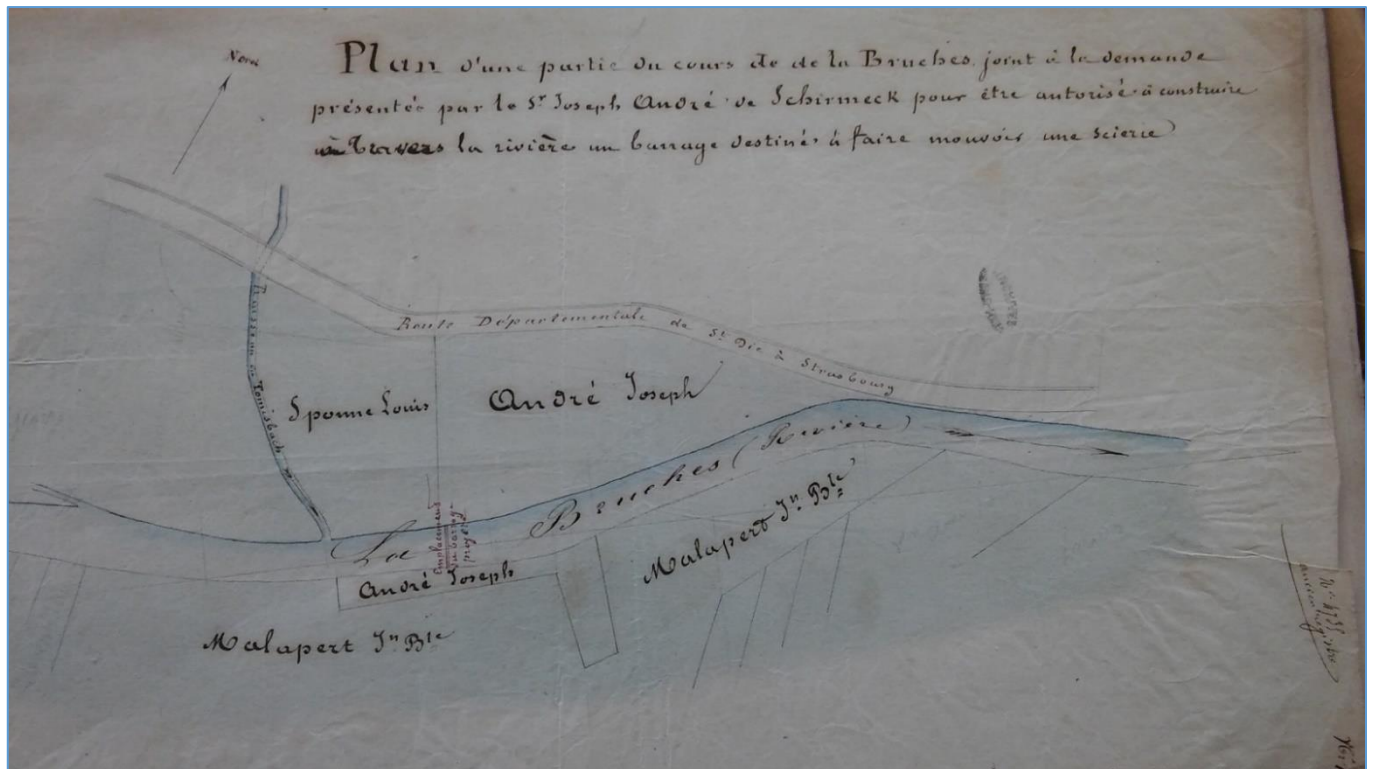 Nord
Plan d'une partie du cours de de la Bruches, joint à la demande
présentée par le Sr Joseph André de Schirmeck pour être autorisé à construire
à Travers la rivière un barrage destiné à faire mouvoir une scierie
Route Départementale de St Dié à Strasbourg
Ruisseau de Tomisbach
Sponne Louis
André Joseph
La Bruches (Rivière)
Emplacement
du barrage
projeté
André Joseph
Malapert Jn Bte
Malapert Jn Bte